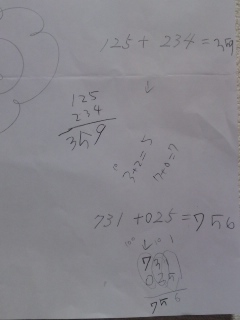 125 + 234 = 359
↓
125
234
359
731 + 025 = 756
↓
731
025
756